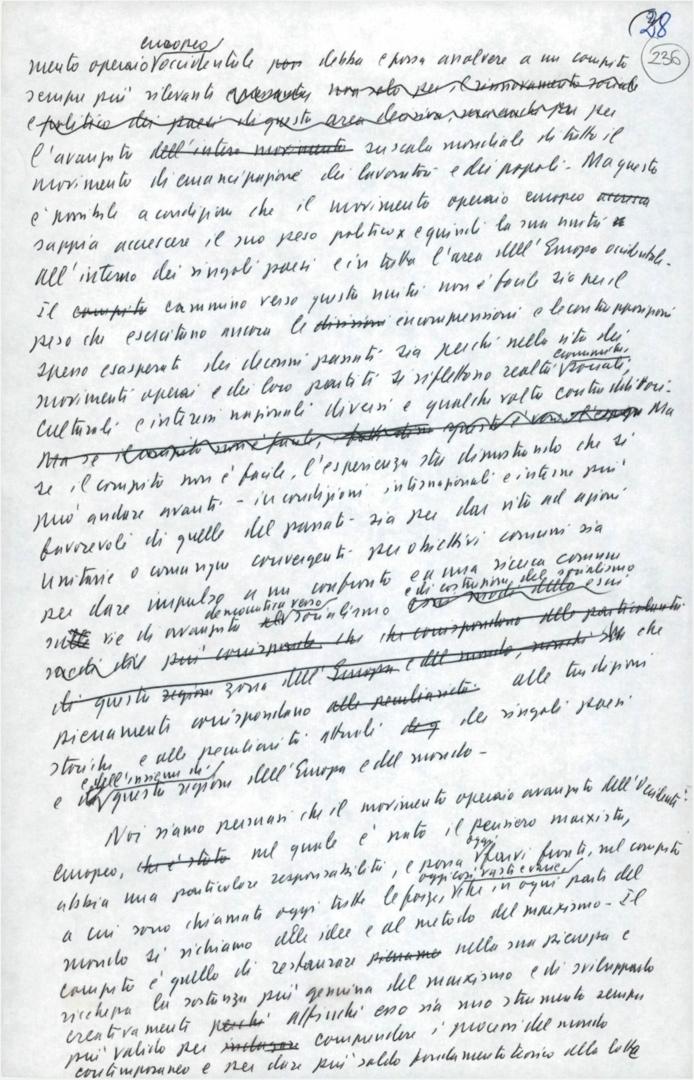 28
236
europeo
mento operaio occidentale debba e possa assolvere a un compito
sempre più rilevante non solo per il rinnovamento sociale
e politico dei paesi di questa area decisiva, ma anche per
l'avanzata dell'intero movimento su scala mondiale di tutto il
movimento di emancipazione dei lavoratori e dei popoli. Ma questo
è possibile a condizione che il movimento operaio europeo
sappia accrescere il suo peso politico e quindi la sua unità
all'interno dei singoli paesi e in tutta l'area dell'Europa occidentale.
Il compito cammino verso questa unità non è facile sia per il
peso che esercitano ancora le divisioni incomprensioni e le contrapposizioni
spesso esasperate dei decenni passati sia perché nella vita dei
movimenti operai e dei loro partiti si riflettono realtà economiche, sociali,
culturali e interessi nazionali diversi e qualche volta contraddittori.
Ma se il compito non è facile, Ma
se il compito non è facile, l'esperienza sta dimostrando che si
può andare avanti - in condizioni internazionali e interne più
favorevoli di quelle del passato - sia per dar vita ad azioni
unitarie o comunque convergenti per obiettivi comuni sia
per dare impulso a un confronto e a una ricerca comune
democratica verso e di costruzione del socialismo
sulle vie di avanzata al socialismo
che più corrispondano che corrispondono alle particolarità
di questa regione zona dell'Europa e del mondo, che
pienamente corrispondano alle peculiarità alle tradizioni
storiche e alle peculiarità attuali dei singoli paesi
e dell'insieme di
e questa regione dell'Europa e del mondo.
Noi siamo persuasi che il movimento operaio avanzato dell'Occidente
europeo, che è stato nel quale è nato il pensiero marxista,
oggi
abbia una particolare responsabilità, e possa farvi fronte, nel compito
oggi così vaste e varie
a cui sono chiamate oggi tutte le forze, che in ogni parte del
mondo si richiamo alle idee e al metodo del marxismo. Il
compito è quello di restaurare nella sua pienezza e
ricchezza la sostanza più genuina del marxismo e di svilupparlo
creativamente perché affinché esso sia uno strumento sempre
più valido per comprendere i processi del mondo
contemporaneo e per dare più saldo fondamento teorico alla lotta